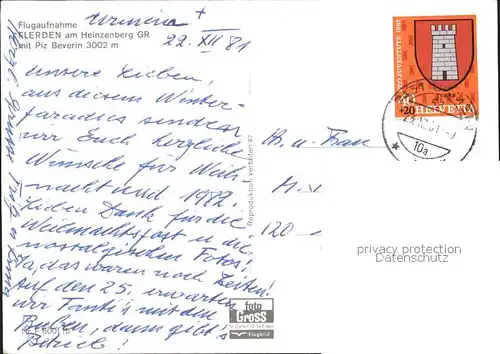 Flugaufnahme
FLERDEN am Heinzenberg GR
mit Piz Beverin 3002 m
22. XII 81
Unsere Lieben,
aus diesem Winter-
paradies senden
wir Euch herzliche
Wünsche für Weih
nacht und 1982.
Lieben Dank für die
Weihnachtspost u. die
nostalgischen Fotos!
Ja, das waren noch Zeiten!
Auf den 25. erwarten
wir Tanti's mit den
Buben, dann gibt's
Betrieb!
Reproduktion verboten 87
foto
Gross
St. Gallen
Flugbild
PRO JUVENTUTE 1981
40
+20
HELVETIA
10a
u. Frau
120
privacy protection
Datenschutz